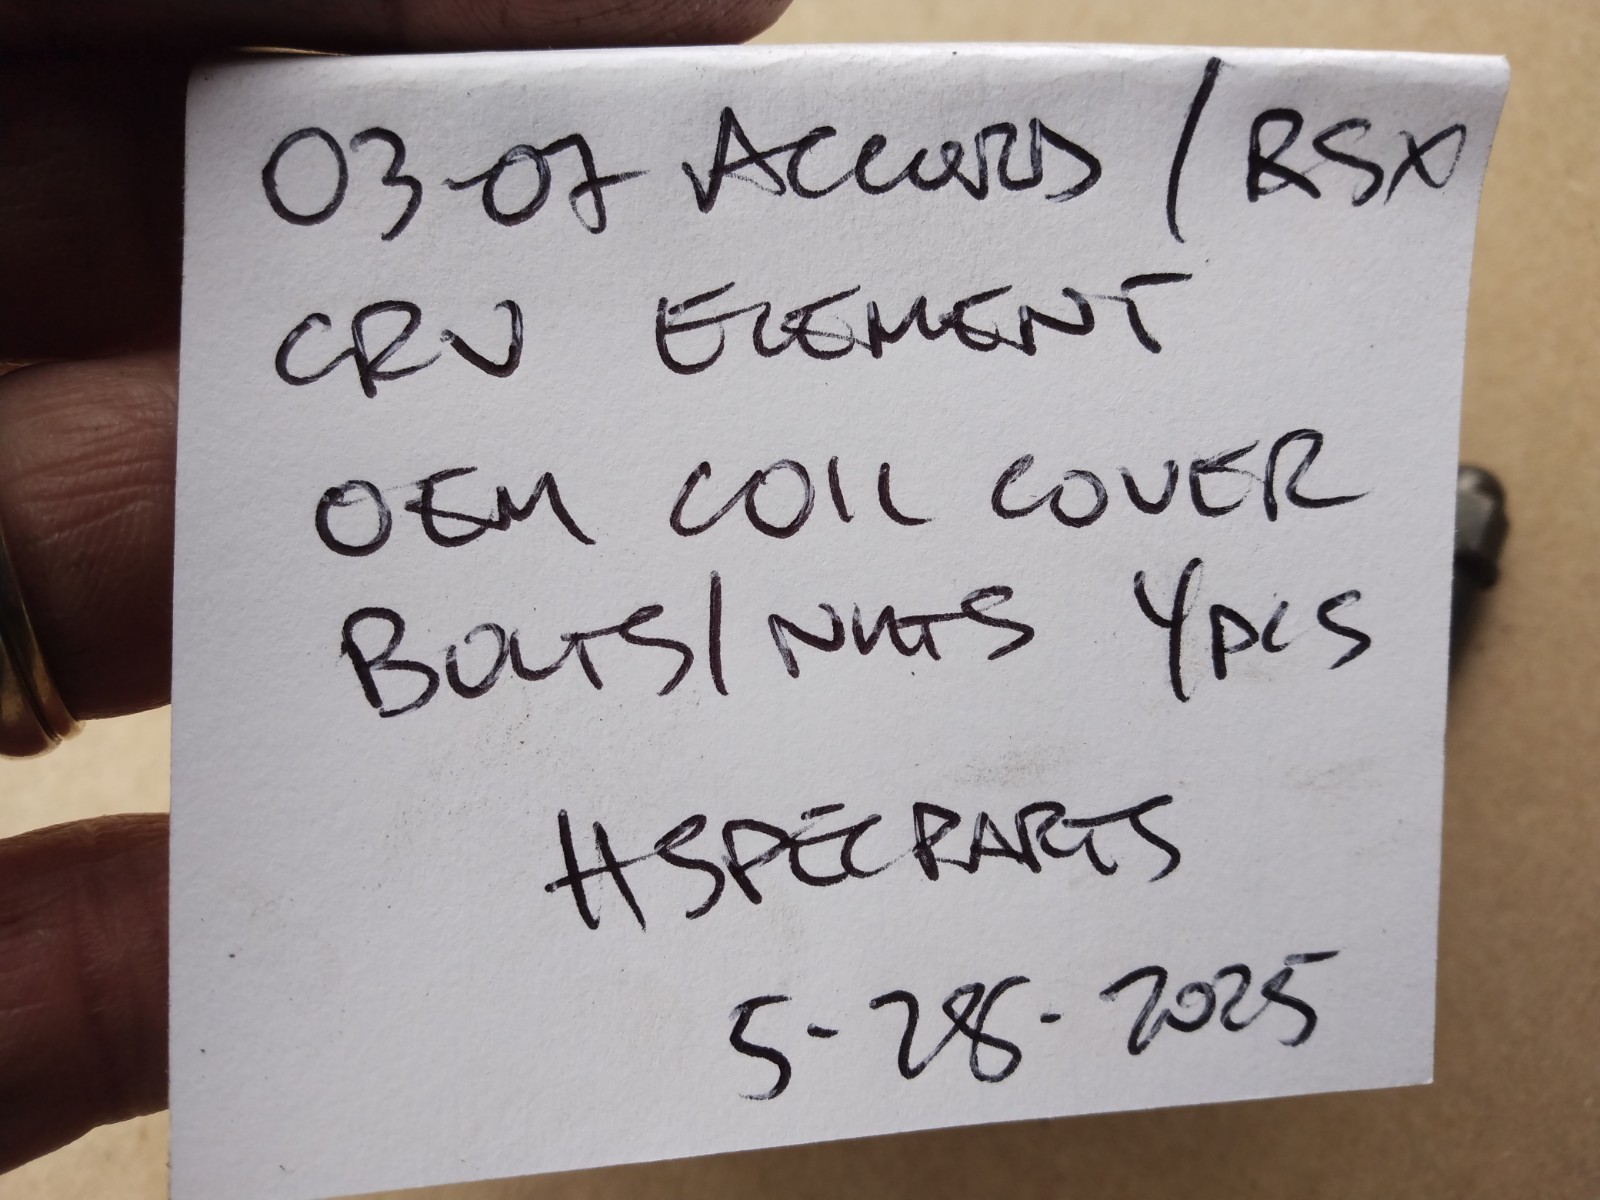 03-07 ACCORD / RSX
CRV ELEMENT
OEM COIL COVER
BOLTS/NUTS 4PCS
HSPECPARTS
5-28-2025